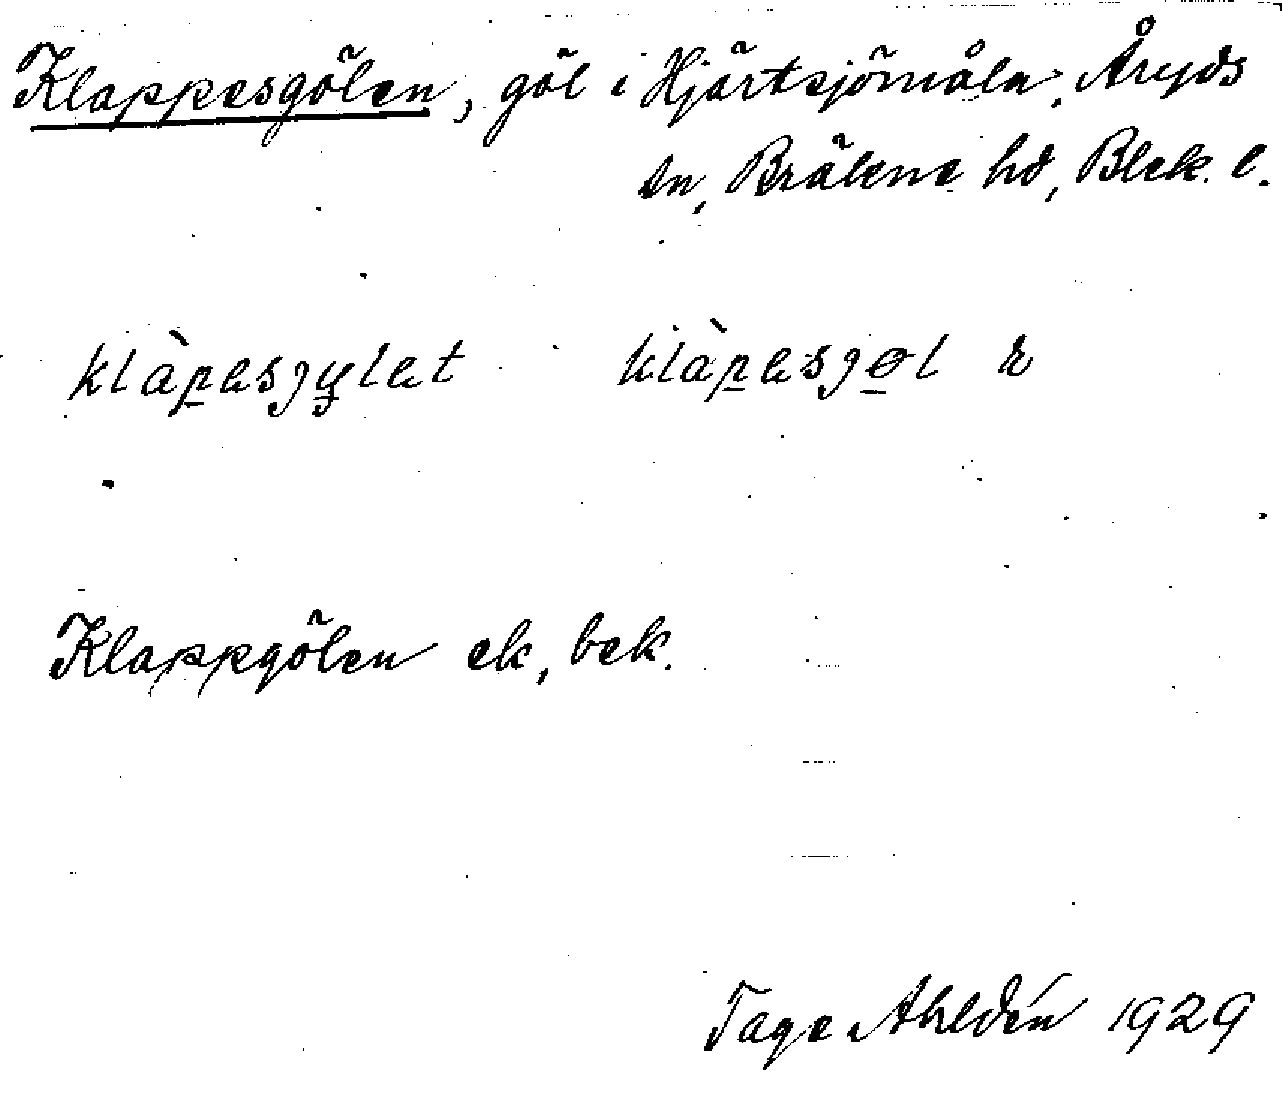 Klappesgölen, göl i Hjärtsjömåla, Åryds
sn, Bräkne hd, Blek. l.
klàpesgylet klàpesgøl r
Klappgölen ek, bek.
Tage Ahldén 1929